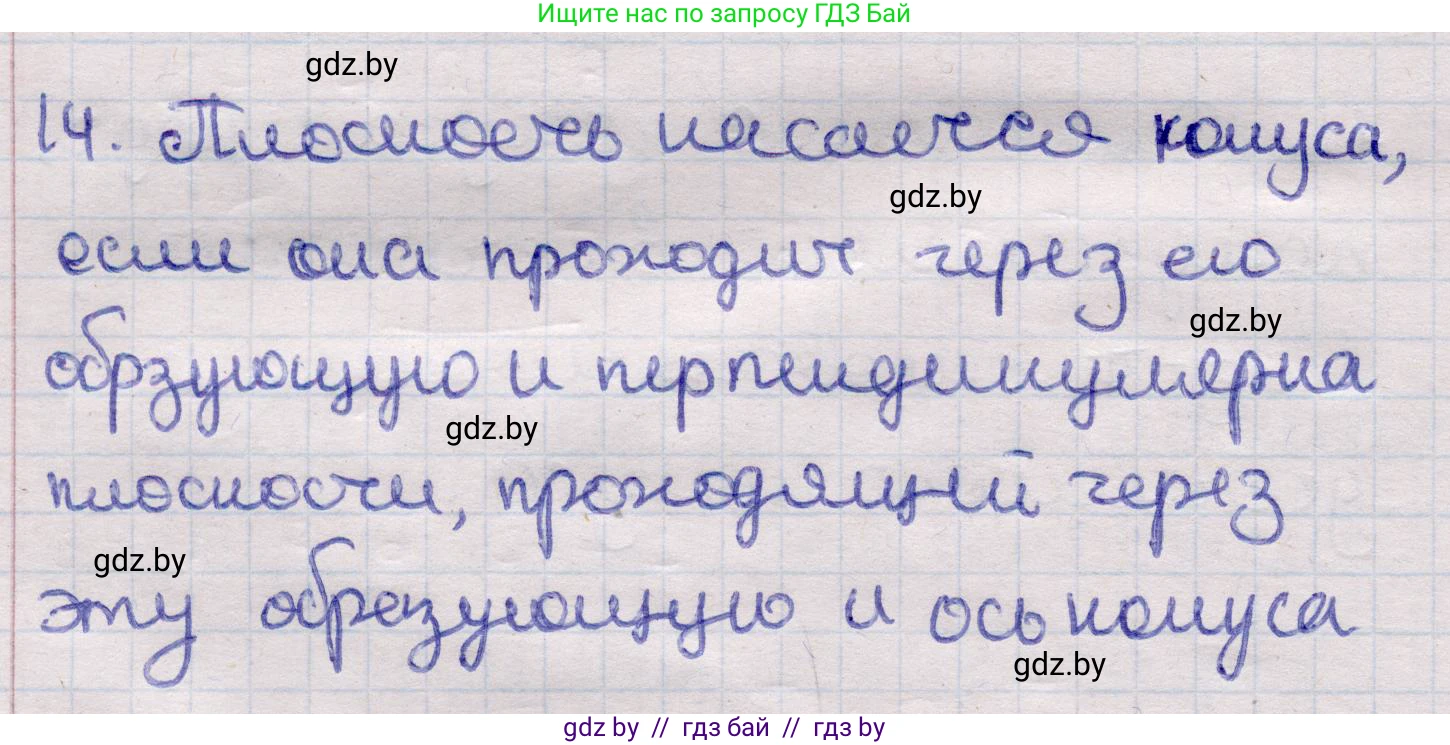 Ищите нас по запросу ГДЗ Бай
gdz.by
14. Плоскость касается конуса,
gdz.by
если она проходит через его
gdz.by
обрзующую и перпендикулярна
gdz.by
плоскости, проходящей через
gdz.by
эту образующую и ось конуса
gdz.by
gdz by // гдз бай // гдз by